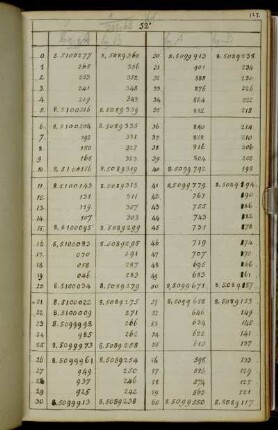 52°
0. 8,5100277 8,5089360 30 8,5099913 8,5089238
1 265 356 31 901 234
2 253 352 32 888 230
3 241 348 33 876 226
4 229 343 34 864 222
5. 8,5100216 8,5089339 35
6. 8,5100204 8,5089335 36 840 214
7 192 331 37 828 210
8 180 327 38 816 206
9 168 323 39 804 202
10. 8,5089319 40 8,5099792 198
11. 8,5100143 8,5089315 41 8,5099779 8,5089194
12 131 311 42 767 190
13 119 307 43 755 186
14 107 303 44 743 182
15. 8,5100095 8,5089299 45 731 178
16. 8,5100083 8,5089295 46 719 174
17 070 291 47 707 170
18 058 287 48 695
19 046 283 49 683
20. 8,5100034 8,5089279 50 8,5099671
21. 8,5100022 8,5089275 51 8,5099658 8,5089153
22. 8,5100009 271 52 646 149
23 8,5099998 266 53 634 145
24 985 262 54 622 141
25 8,5099973 8,5089258 55 610 137
26 8,5099961 8,5089254 56 598 133
27 949 250 57 586 129
28 937 246 58 574
29 925 242 59 562 121
30. 8,5099913 8,5089238 60 8,5099550 8,5089117